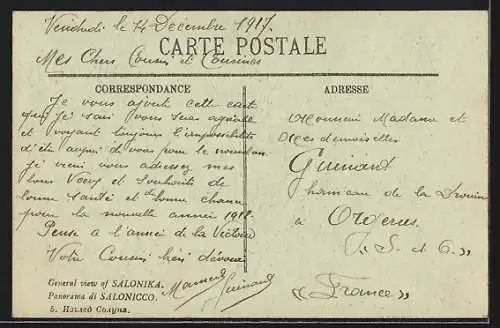 Vendredi le 14 Décembre 1917.
CARTE POSTALE
Mes Chers Cousin et Cousines
CORRESPONDANCE
Je vous ajoute cette carte
que je sais vous sera agréable
et voyant toujours l'impossibilité
d'être auprès de vous pour le nouvel an
Je viens vous adresser mes
bons Voeux et Souhaits de
bonne Santé et de bonne chance
pour la nouvelle année 1918.
Pense à l'année de la Victoire
Votre Cousin bien dévoué
General view of SALONIKA.
Panorama di SALONICCO.
5. Изглед Солуна.
ADRESSE
Monsieur Madame et
Mesdemoiselles
Guinant
hameau de la
à
(S. et O.)
(France)